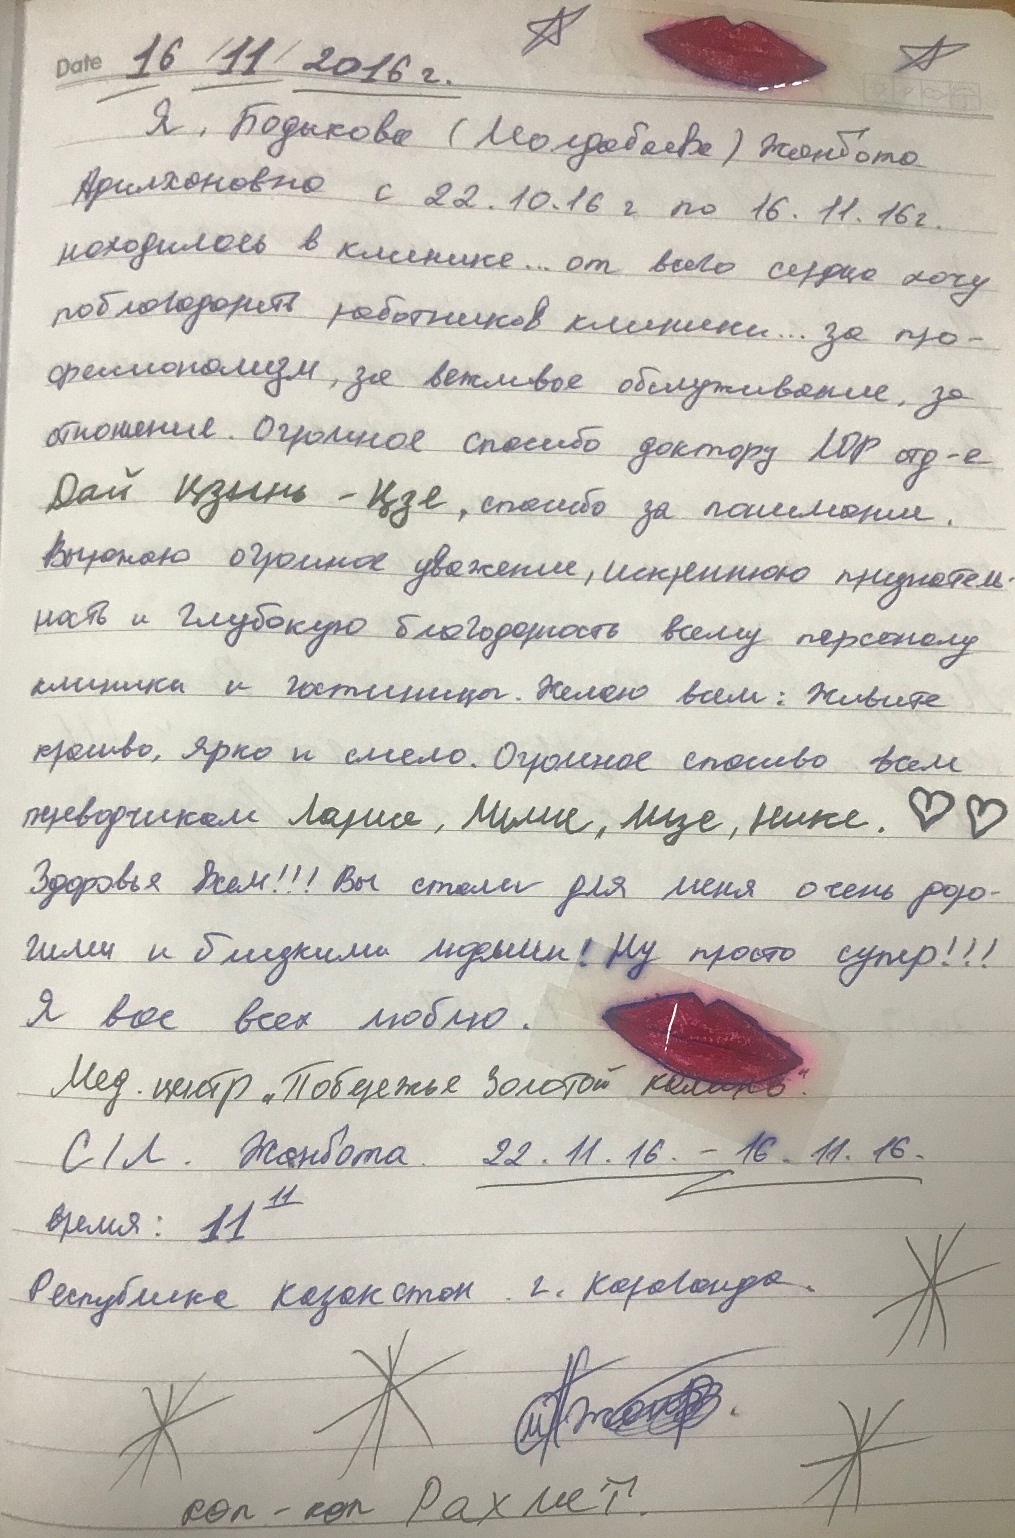 Date 16/11/2016 г.
Я, Бодыкова (Молдабаева) Жанбота
Арилхановна с 22.10.16 г по 16.11.16г.
находилась в клинике... от всего сердца хочу
поблагодарить работников клиники... за про-
фессионализм, за вежливое обслуживание, за
отношение. Огромное спасибо доктору ЛОР отд-е
Дай Цзынь-Цзе, спасибо за понимание.
Выражаю огромное уважение, искреннюю признатель-
ность и глубокую благодарность всему персоналу
клиники и гостиницы. Желаю всем: Живите
красиво, ярко и смело. Огромное спасиво всем
переводчикам Ларисе, Миле, Лизе, Нике.
Здоровья Вам!!! Вы стали для меня очень доро-
гими и близкими людьми! Ну просто супер!!!
Я вас всех люблю.
Мед. центр „Побережье Золотой камень".
С/Л. Жанбота. 22.11.16. – 16.11.16.
время: 11 11
Республика Казахстан г. Караганда.
коп-коп Рахмет.